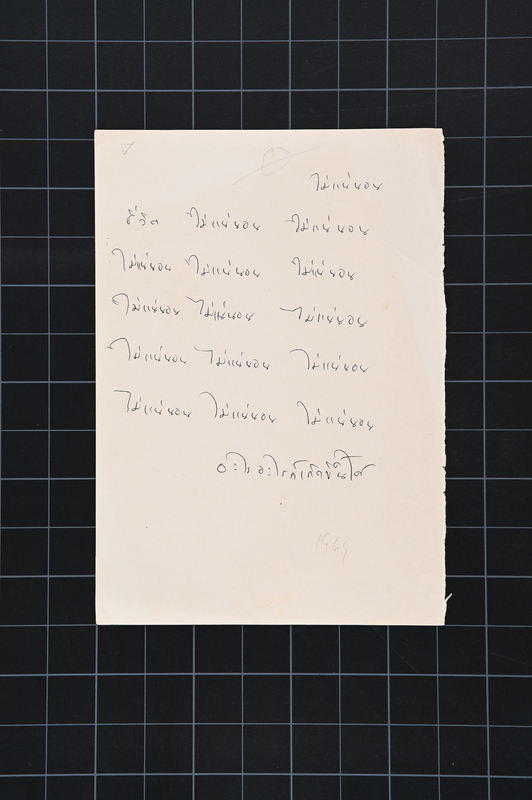 ไม่แน่นอน
ชีวิต ไม่แน่นอน ไม่แน่นอน
ไม่แน่นอน ไม่แน่นอน ไม่แน่นอน
ไม่แน่นอน ไม่แน่นอน ไม่แน่นอน
ไม่แน่นอน ไม่แน่นอน ไม่แน่นอน
ไม่แน่นอน ไม่แน่นอน ไม่แน่นอน
อะไร อะไรก็เกิดขึ้นได้